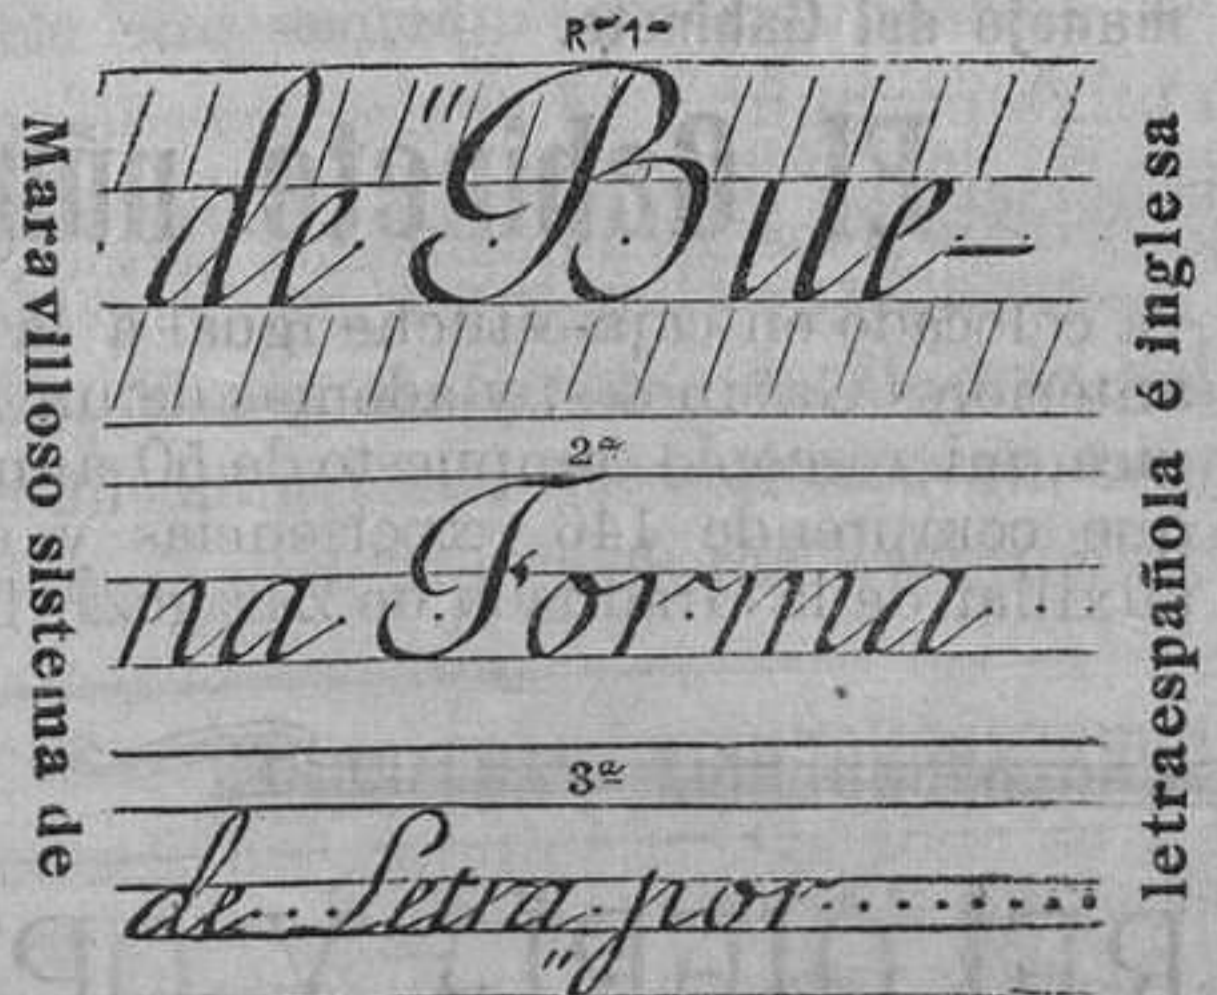 Maravilloso sistema de
Rª 1ª
de "Bue-
2ª
na Forma
3ª
de Letra por
"
letra española é inglesa